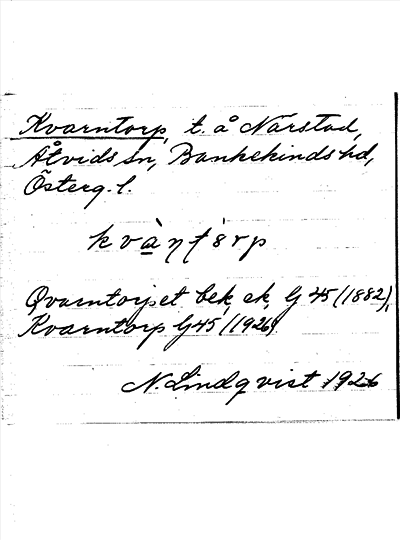 Kvarntorp, t. å Närstad,
Åtvids sn, Bankekinds hd,
Österg. l.
kvàṉtórp
Qvarntorpet bek, ek, G 45 (1882),
Kvarntorp G45 (1926)
N. Lindqvist 1926